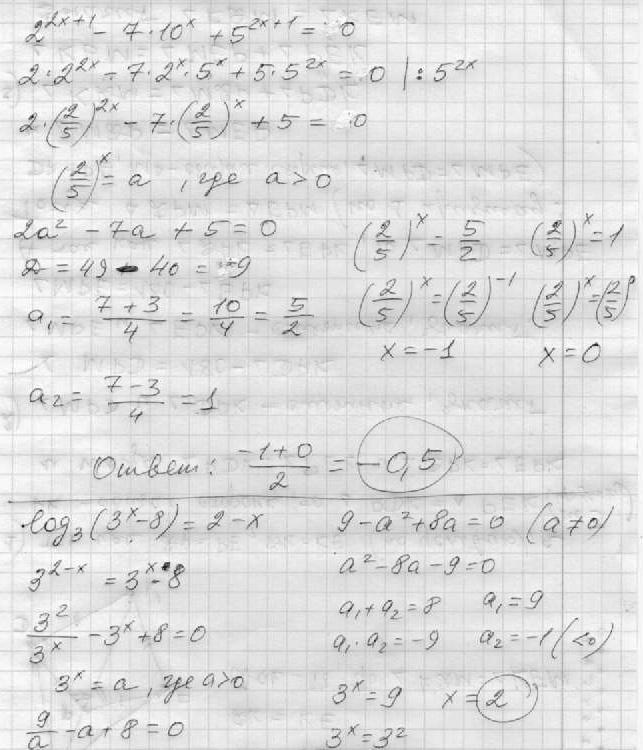 2^{2x+1} - 7·10^x + 5^{2x+1} = 0
2·2^{2x} - 7·2^x·5^x + 5·5^{2x} = 0 |:5^{2x}
2·(2/5)^{2x} - 7·(2/5)^x + 5 = 0
(2/5)^x = a, где a>0
2a² - 7a + 5 = 0
D = 49 - 40 = 9
a₁ = (7+3)/4 = 10/4 = 5/2
a₂ = (7-3)/4 = 1
(2/5)^x = 5/2 (2/5)^x = 1
(2/5)^x = (2/5)^{-1} (2/5)^x = (2/5)^0
x = -1 x = 0
Ответ: (-1+0)/2 = -0,5
log₃(3^x - 8) = 2 - x
3^{2-x} = 3^x - 8
3²/3^x - 3^x + 8 = 0
3^x = a, где a>0
9/a - a + 8 = 0
9 - a² + 8a = 0 (a ≠ 0)
a² - 8a - 9 = 0
a₁ + a₂ = 8 a₁ = 9
a₁·a₂ = -9 a₂ = -1 (<0)
3^x = 9 x = 2
3^x = 3²